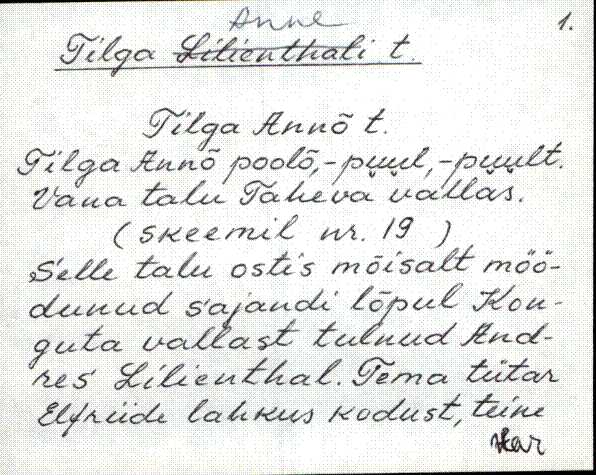 Anne
1.
Tilga Lilienthali t.
Tilga Annõ t.
Tilga Annõ poolõ, -puul, -puult.
Vana talu Taheva vallas.
(skeemil nr. 19)
Selle talu ostis mõisalt möö-
dunud sajandi lõpul Kon-
guta vallast tulnud And-
res Lilienthal. Tema tütar
Elfriide lahkus kodust, teine
Har